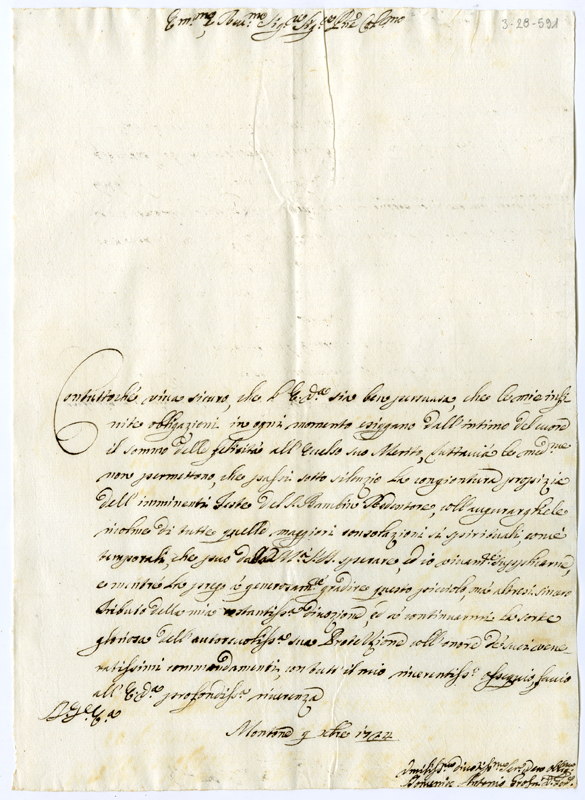 Em.mo e Rev.mo Sig.re Sig.re P̃ne Col.mo
3-28-591
Contuttoché viva sicuro, che l'E. V.ra sia ben persuasa, che le mie infi
nite obligazioni in ogni momento esiggano dall'intimo del cuore
il sommo delle felicità all'Eccelso suo Merito, tuttavia le med.me
non permettono, che passi sotto silenzio la congiontura propizia
dell'imminenti Feste del S. Bambin Redentore coll'augurarghele
ricolme di tutte quelle maggiori consolazioni sì spirituali, com'è
temporali, che può dalla M.tà sperare, ed io vivam.te
e mentre la prego à generosam.te gradire questo picciolo, mà altresì sincero
tributo della mia costantiss.ma divozione ed à continuarmi la sorte
gloriosa dell'autorevoliss.a sua Protezzione coll'onore de suoi vene
ratissimi commandamenti, con tutt'il mio riverentiss.o ossequio faccio
all'E. V.ra profondiss.a riverenza
Di V. E.za
Montone 9 Xbre 1734
Umiliss.mo Divotiss.mo Serv.dore Obl.mo
Domenico Antonio